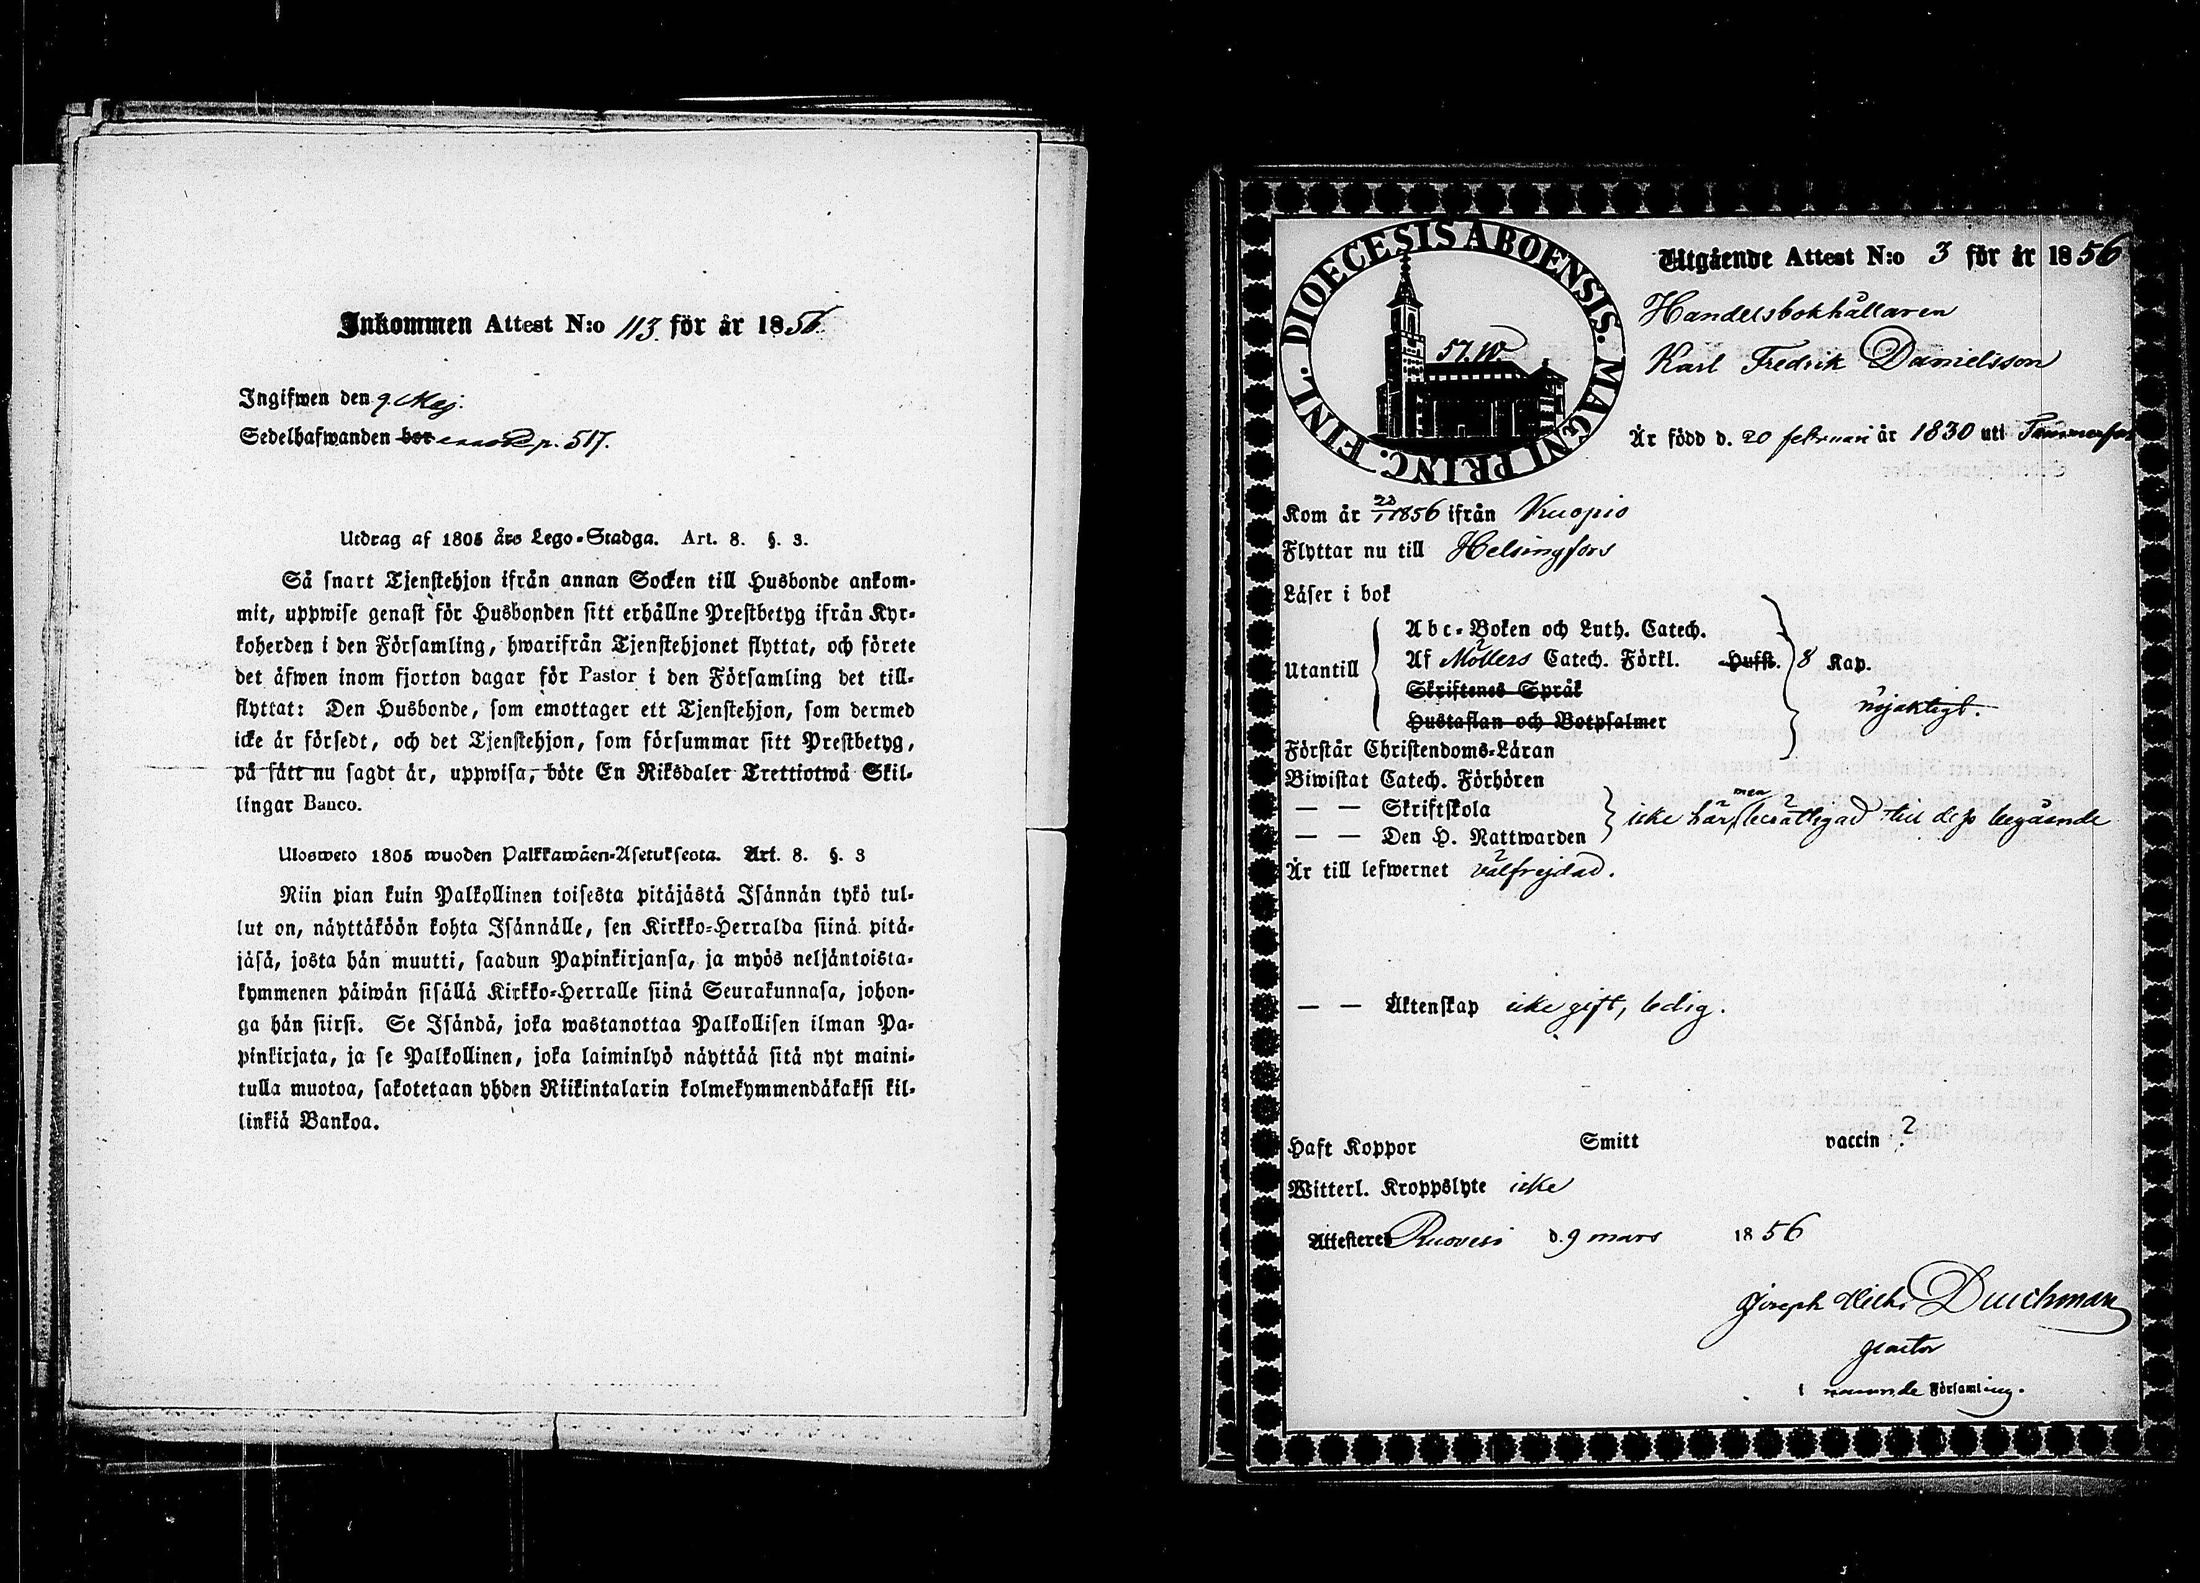 Inkommen Attest N:o 113. för år 1856.
Ingifwen den 9. Maj.
Sedelhafwanden bor p. 517.
Utdrag af 1805 års Lego-Stadga. Art. 8. §. 3.
Så snart Tjenstehjon ifrån annan Socken till Husbonde ankom-
mit, uppwise genast för Husbonden sitt erhållne Prestbetyg ifrån Kyr-
koherden i den Församling, hwarifrån Tjenstehjonet flyttat, och förete
det äfwen inom fjorton dagar för Pastor i den Församling det till-
flyttat: Den Husbonde, som emottager ett Tjenstehjon, som dermed
icke är försedt, och det Tjenstehjon, som försummar sitt Prestbetyg,
på sätt nu sagdt är, uppwisa, böte En Riksdaler Trettiotwå Skil-
lingar Banco.
Ulosweto 1805 wuoden Palkkawäen-Asetuksesta. Art. 8. §. 3
Niin pian kuin Palkollinen toisesta pitäjästä Isännän tykö tul-
lut on, näyttäköön kohta Isännälle, sen Kirkko-Herralda siinä pitä-
jäsä, josta hän muutti, saadun Papinkirjansa, ja myös neljäntoista-
kymmenen päiwän sisällä Kirkko-Herralle siinä Seurakunnasa, johon-
ga hän siirsi. Se Isändä, joka wastanottaa Palkollisen ilman Pa-
pinkirjata, ja se Palkollinen, joka laiminlyö näyttää sitä nyt maini-
tulla muotoa, sakotetaan yhden Riikintalarin kolmekymmendäkaksi kil-
linkiä Bankoa.
DIOECESIS ABOENSIS. MAGNI PRINC. FINL.
Utgående Attest N:o 3 för år 1856
Handelsbokhållaren
Karl Fredrik Danielsson
Är född d. 20 februari år 1830 uti Tammerfors
Kom år 23/1 1856 ifrån Kuopio
Flyttar nu till Helsingfors
Läser i bok
Utantill
Abc-Boken och Luth. Catech.
Af Möllers Catech. Förkl. Hufst. 8 Kap.
Skriftenes Språk
nöjaktigt.
Hustaflan och Botpsalmer
Förstår Christendoms-Läran
Biwistat Catech. Förhören
— — Skriftskola
icke här, men berättigad till dess begående
— — Den H. Nattwarden
Är till lefwernet välfrejdad.
— — Äktenskap icke gift, ledig.
Haft Koppor Smitt vaccin ?
Witterl. Kroppslyte icke
Attesteres Ruovesi d. 9 mars 1856
Joseph Durchman
Pastor
i nämnde Församling.